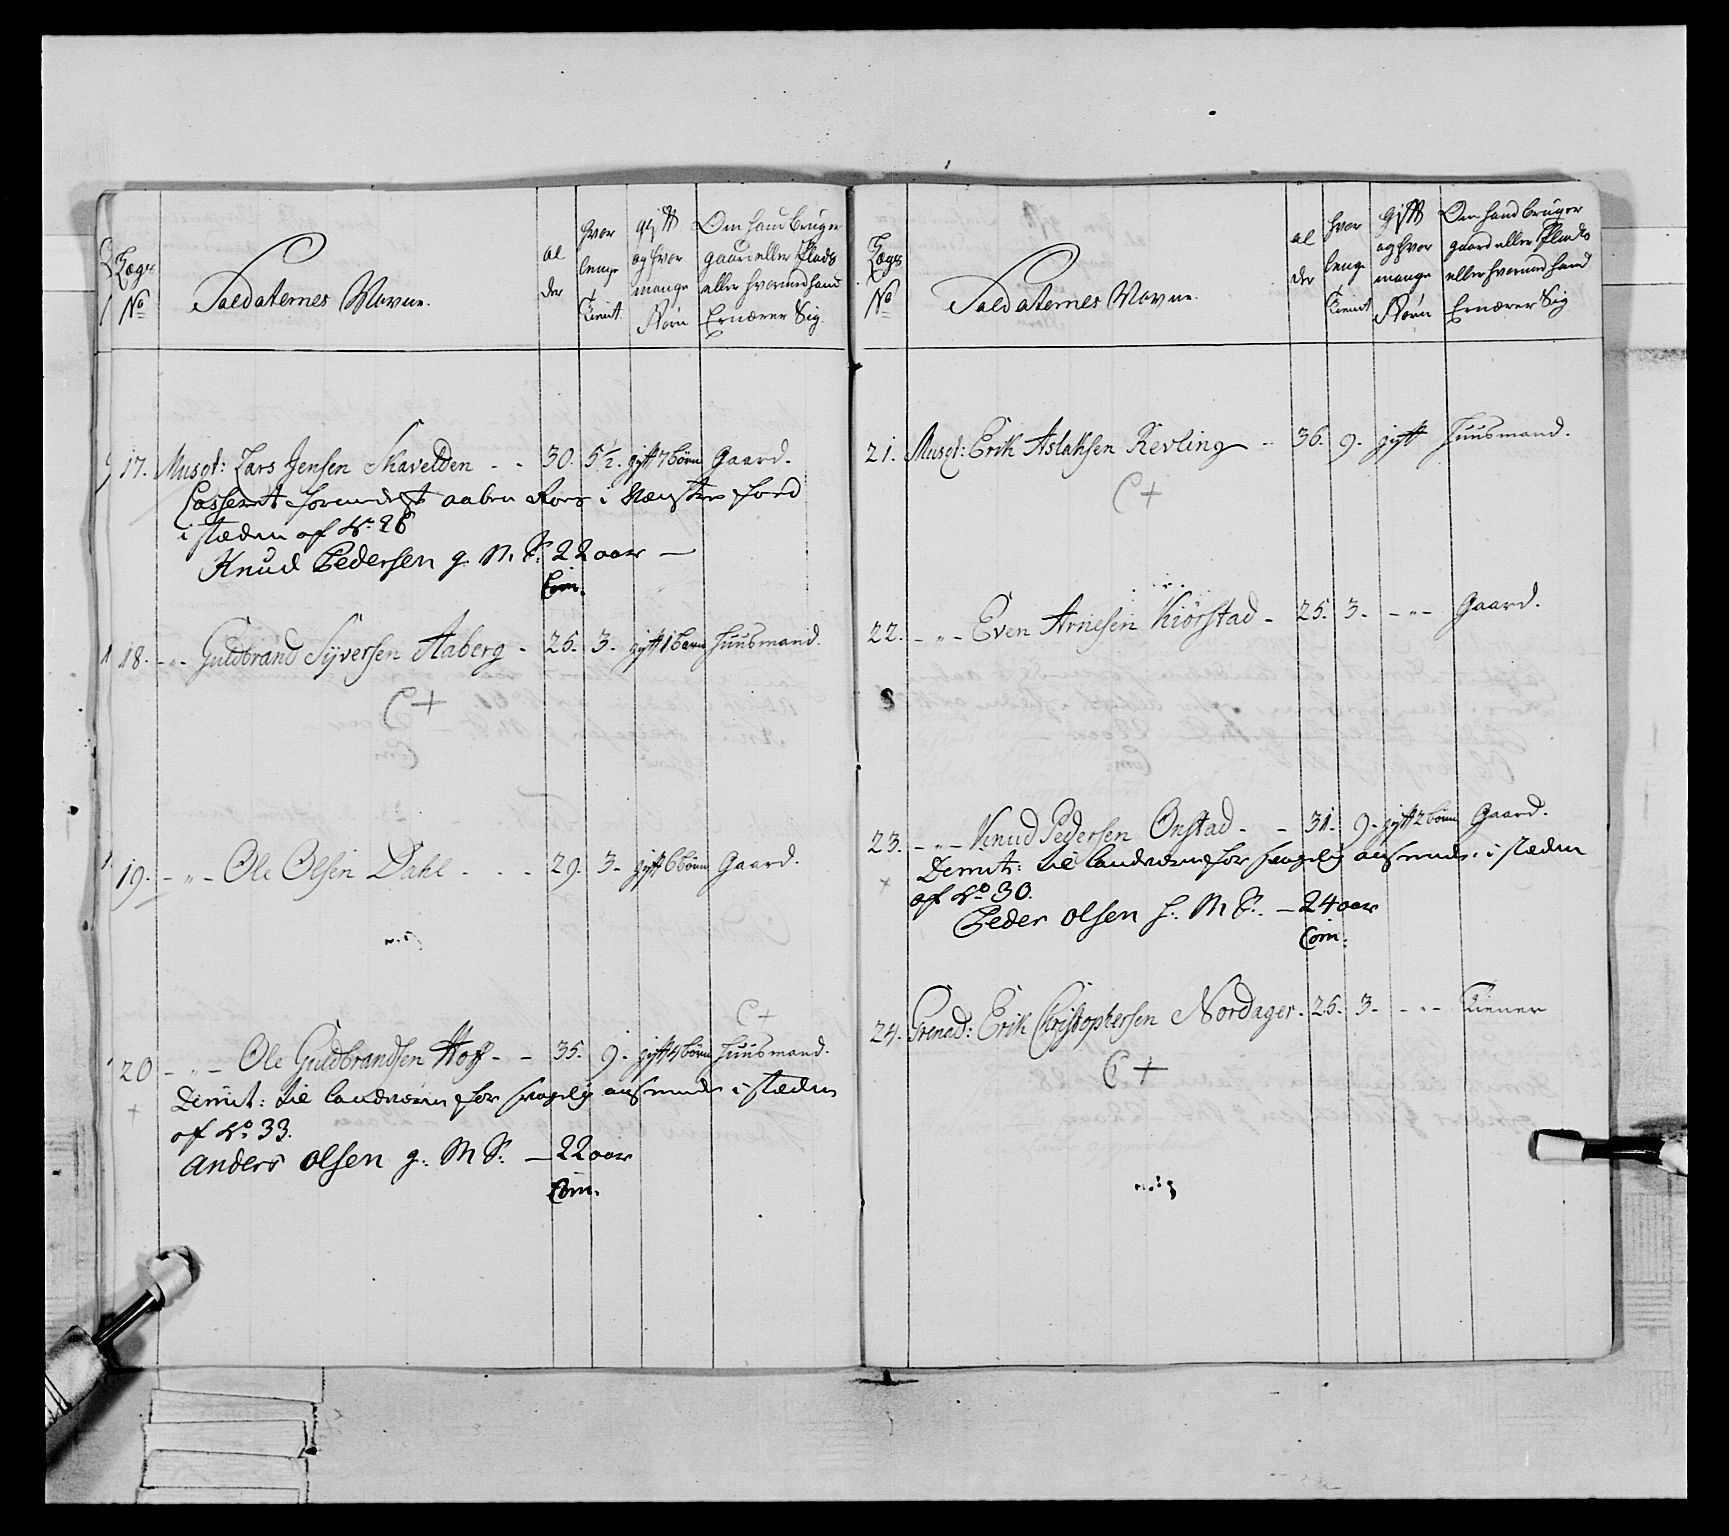 Lægs
No
Soldaternes Navne.
al
der
hvor
lenge
tient
gift
og hvor
mange
Børn
Om hand bruger
gaard eller Plads
eller hvormed hand
Ernærer Sig
17. Musqt: Lars Jensen Skavelden - - 30. 5½. gift 7 børn Gaard.
Casseret formedelst aaben Rørs i Venstre
i stæden af No. 28
Knud Pedersen g. M. S. 22 aar —
Com.
18. - „ - Guldbrand Syversen Aaberg - 25. 3. gift 1 barn Huusmand.
19. - „ - Ole Olsen Dahl - - - 29. 3 - gift 6 børn Gaard.
20 - „ - Ole Guldbrandsen Hoff - - 35. 9. gift 4 børn Huusmand.
Dimit: til landværnet for svagelig i stæden
af No. 33.
Anders Olsen g: M S: — 22 aar
Com.
Lægs
No
Soldaternes Navne
al
der
hvor
lenge
tient
gift
og hvor
mange
Børn
Om hand bruger
gaard eller Plads
eller hvormed hand
Ernærer Sig
21. Musqt: Erik Aslaksen Kevling - - 36. 9. gift Huusmand.
22. - „ - Even Arnesen Kiørstad - 25. 3. - „ - Gaard.
23. - „ - Knud Pedersen Onstad - - 31. 9. gift 2 børn Gaard.
Dimit: til landværnet for svagelig i stæden
af No. 30.
Peder Olsen S: M S. — 24 aar
Com:
24. Grenad: Erik Christophersen Nordager. 25. 3. - „ - Tiener